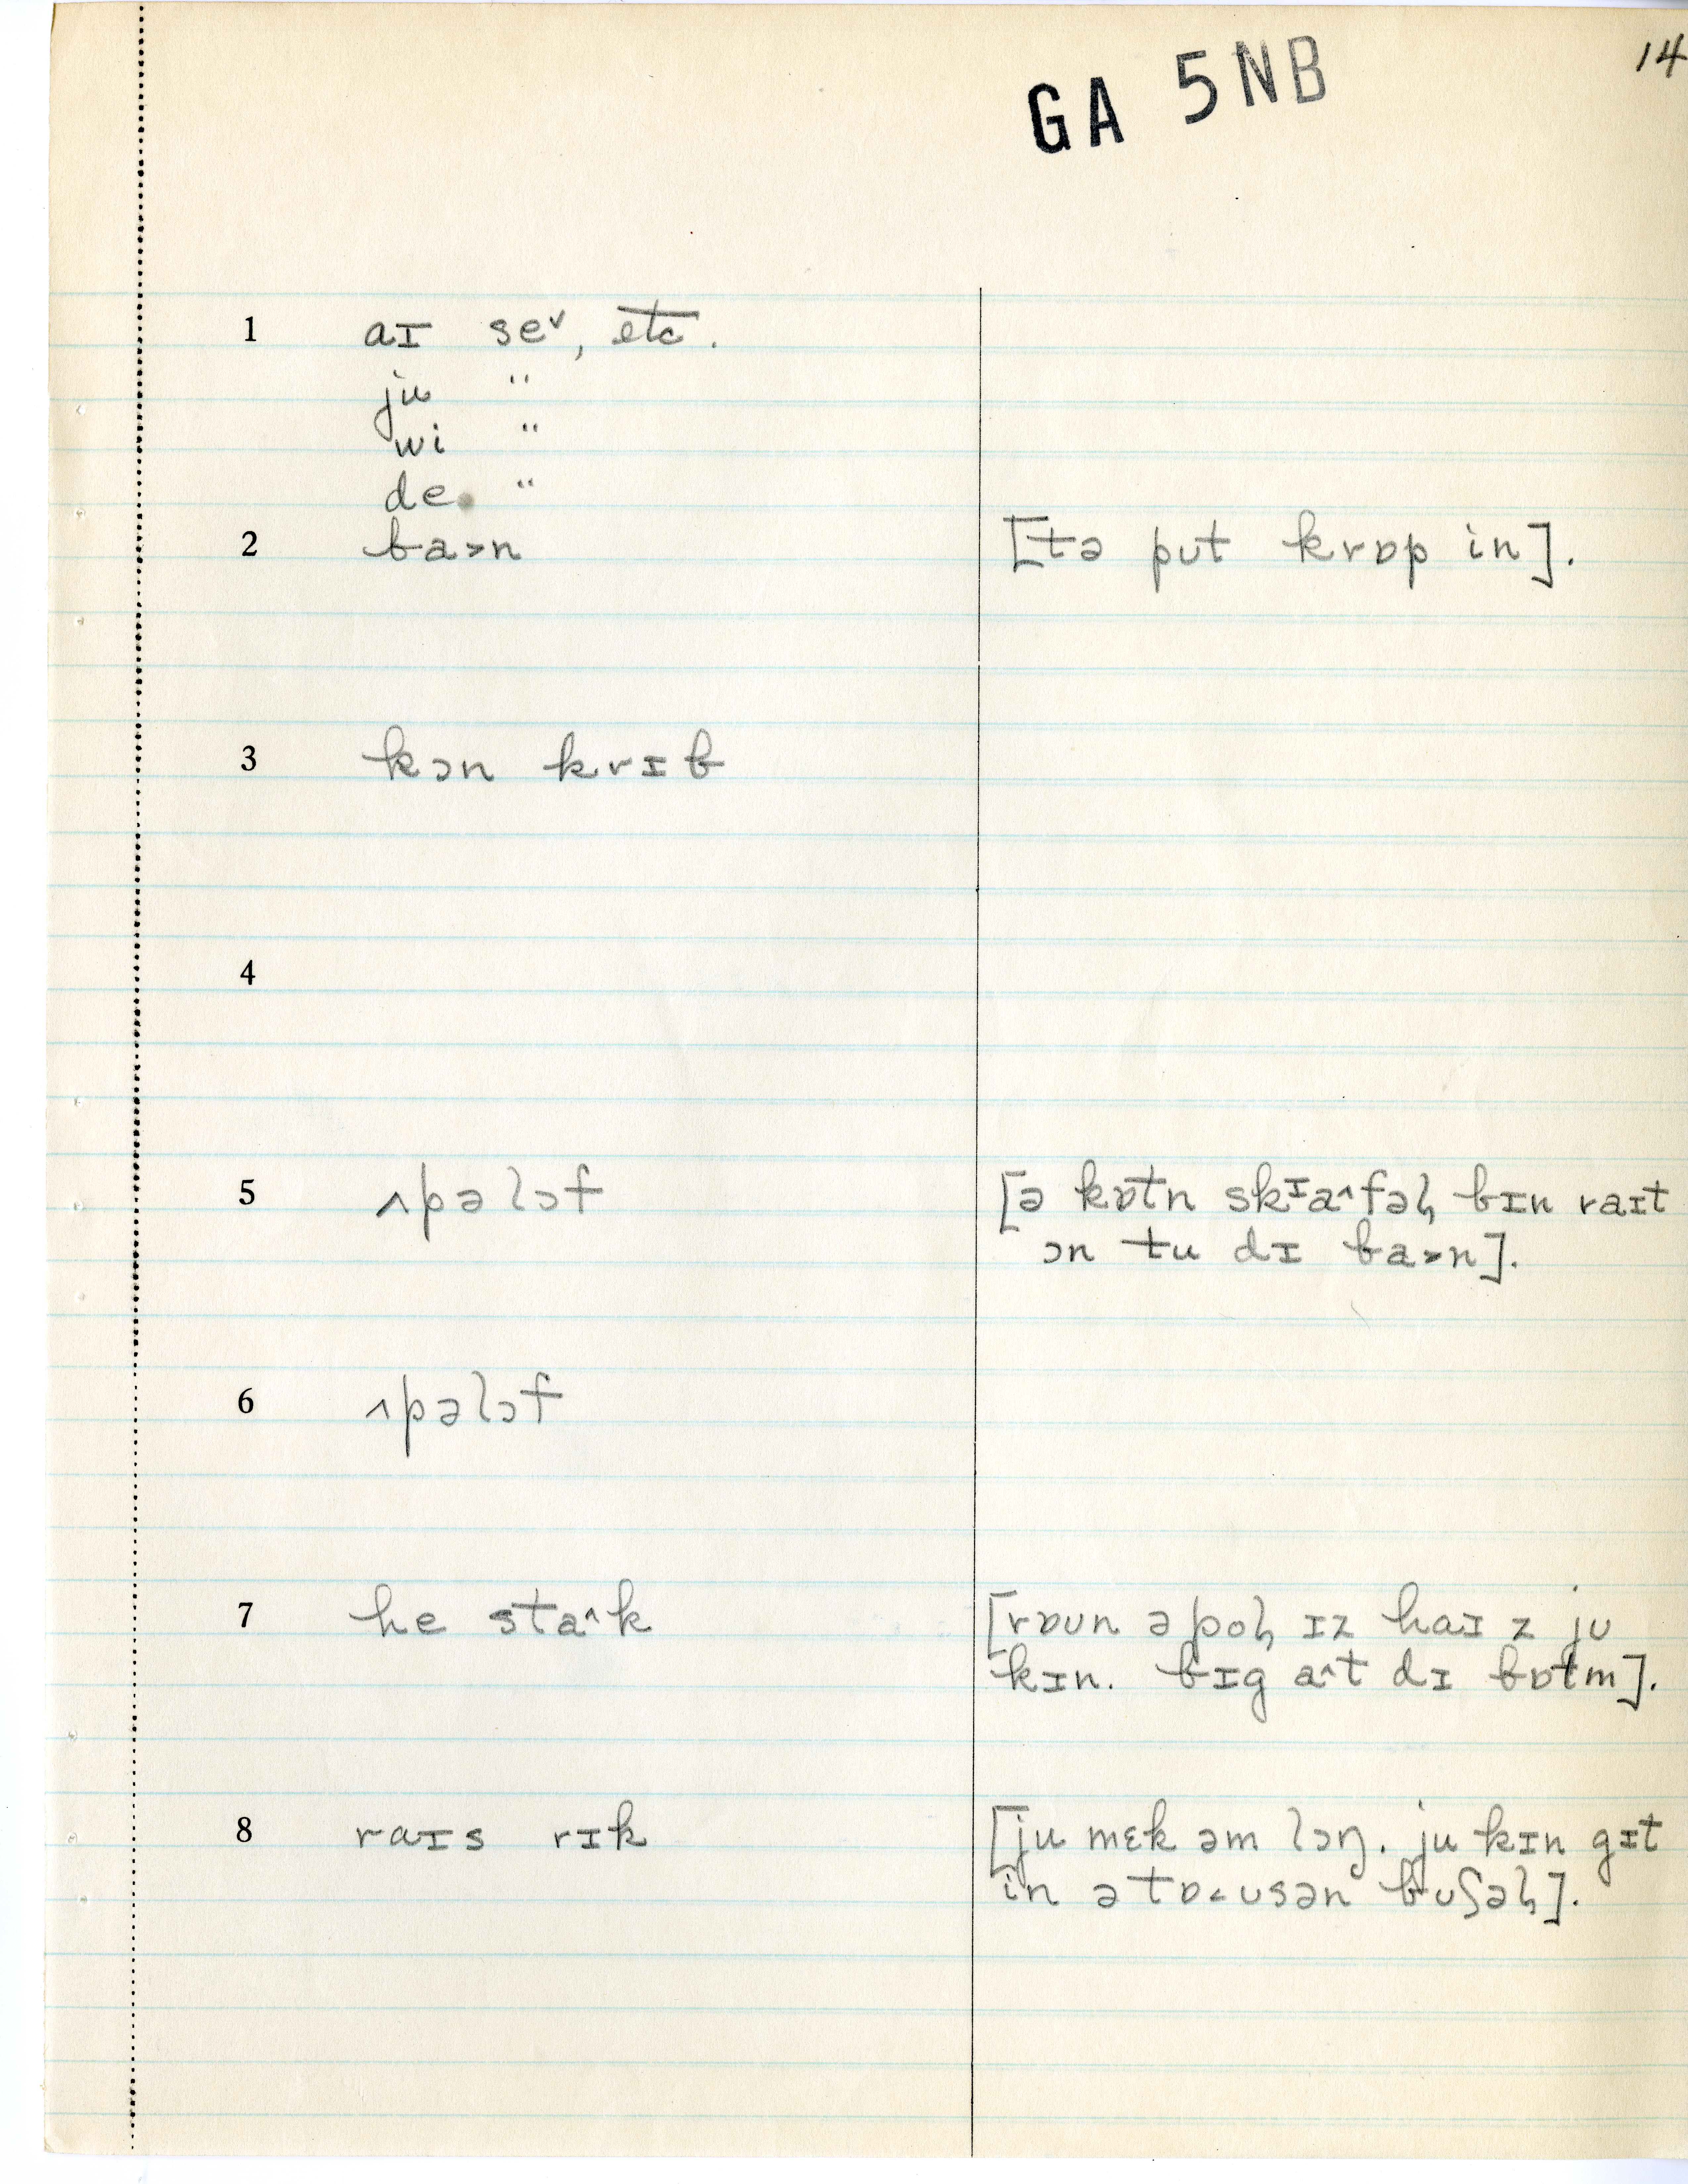 GA 5NB
14
1 aɪ se˅, etc.
ju "
wi "
de "
2 ba˃n [tə put krɒp in].
3 kɔn krɪb
4
5 ʌpəlɔf [ə kɒtn skɪa˄fəɫ bɪn raɪt
ɔn tu dɪ ba˃n].
6 ʌpəlɔf
7 he sta˄k [rɒun ə poɫ ɪz haɪ z ju
kɪn. bɪg a˄t dɪ bɒtm].
8 raɪs rɪk [ju mɛk əm lɔŋ. ju kɪn gɪt
in ə tɒ˂usən buʃəɫ].